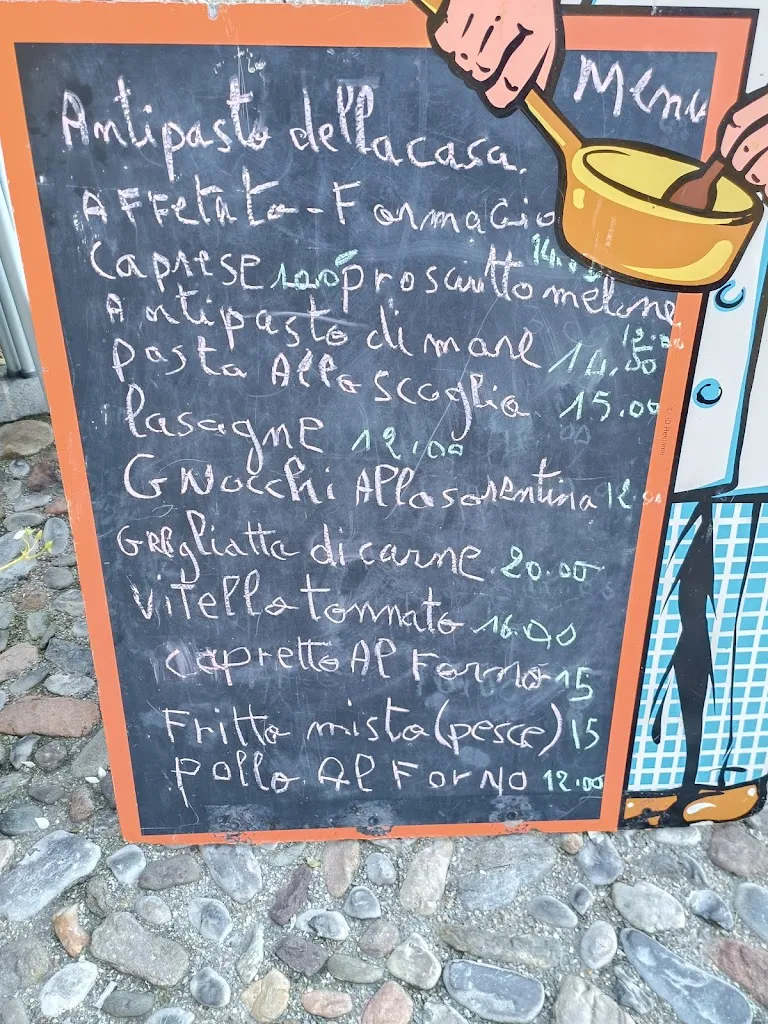 Menu
Antipasto della casa.
AFFetato-Formagio
14.00
Caprese 10.00 prosciutto melone
12.00
Antipasto di mare 14.00
pasta Allo scoglio 15.00
lasagne 12.00
GNocchi Alla sorentina 12.00
GREgliatta di carne 20.00
ViTello tonnato 16.00
capretto Al Forno 15
Fritto misto (pesce) 15
pollo Al ForNo 12.00